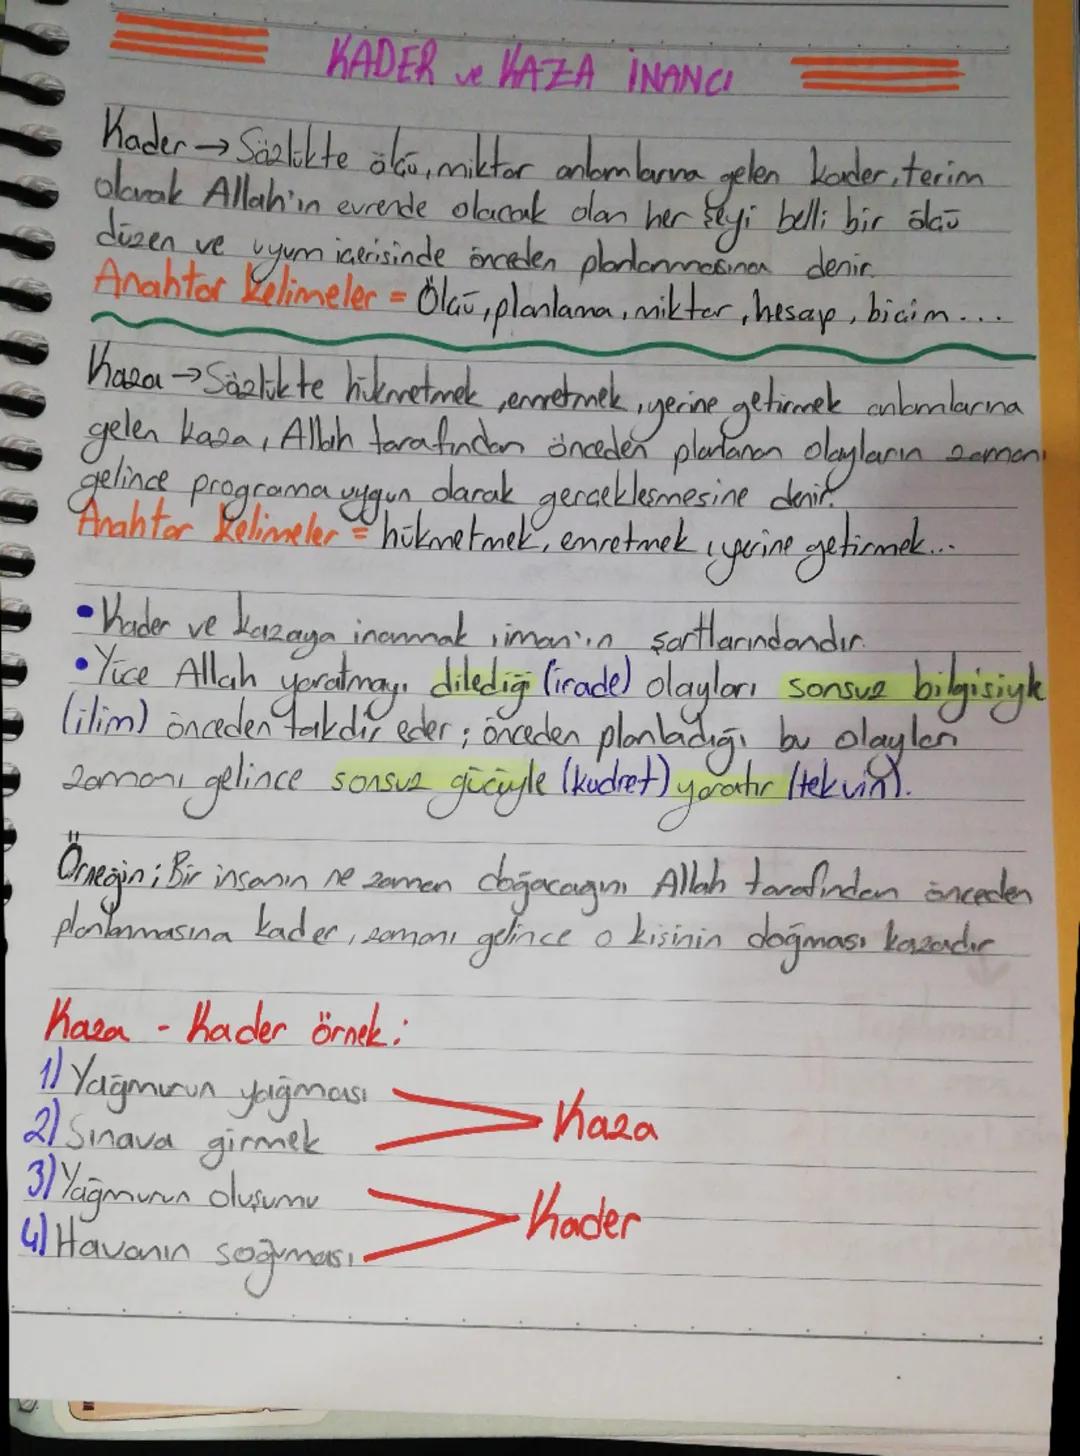 KADER ve KAZA İNANCI
Kader → Sözlükte ölçü, miktar anlamlarına gelen kader, terim
olarak Allah'ın evrende olacak olan her şeyi belli bir ölçü
düzen ve uyum içerisinde önceden planlanmasına denir.
Anahtar Kelimeler = Ölçü, planlama, miktar, hesap, biçim...
Kaza → Sözlükte hükmetmek, emretmek, yerine getirmek anlamlarına
gelen kaza, Allah tarafından önceden planlanan olayların zamanı
gelince programa uygun olarak gerçekleşmesine denir.
Anahtar Kelimeler = hükmetmek, emretmek, yerine getirmek...
• Kader ve kazaya inanmak iman'ın şartlarındandır.
• Yüce Allah yaratmayı dilediği (irade) olayları sonsuz bilgisiyle
(ilim) önceden takdir eder; önceden planladığı bu olayları
zamanı gelince sonsuz gücüyle (kudret) yaratır (tekvin).
Örneğin; Bir insanın ne zaman doğacağını Allah tarafından önceden
planlanmasına kader, zamanı gelince o kişinin doğması kazadır
Kaza - Kader örnek:
1) Yağmurun yağması
2) Sınava girmek
Kaza
3) Yağmurun oluşumu
4) Havanın soğuması
Kader